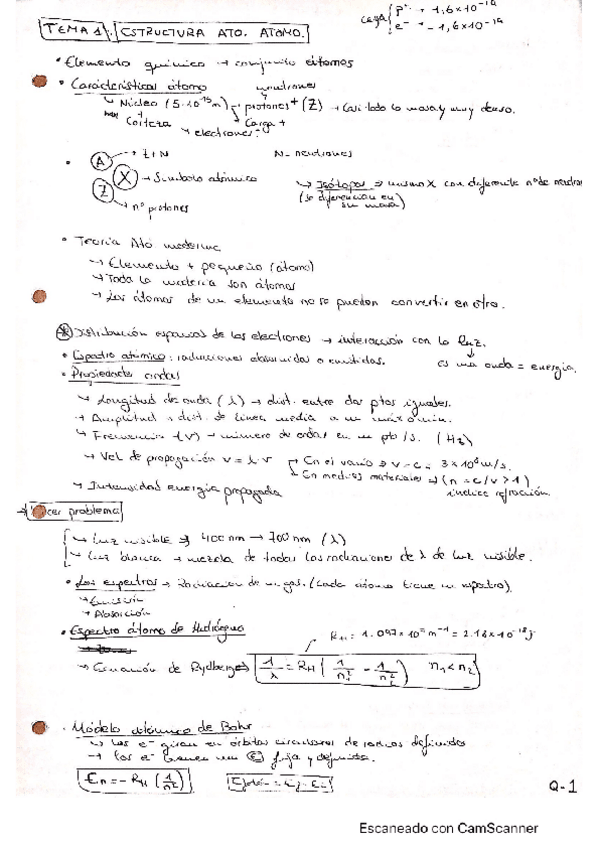 TEMA 1. ESTRUCTURA ATO. ATOMO.
carga { p+ → 1,6×10⁻¹⁹
e⁻ → -1,6×10⁻¹⁹
• Elemento químico → conjunto átomos
• Características átomo
neutrones
↳ Núcleo (5·10⁻¹⁵m) protones+ (Z) → Casi todo la masa y muy denso.
Carga +
Corteza
↳ electrones⁻
• A → Z+N N- neutrones
X → Símbolo atómico
↳ Isótopos ⇒ mismo X con diferente nº de neutrones
Z → nº protones
(se diferencian en su masa)
• Teoría Ató moderna
→ Elemento + pequeño (átomo)
→ Toda la materia son átomos
→ Los átomos de un elemento no se pueden convertir en otro.
Distribución espacial de los electrones → interacción con la luz.
• Espectro atómico: radiaciones absorbidas o emitidas.
es una onda = energía.
• Propiedades ondas
↳ Longitud de onda (λ) → dist. entre dos ptos iguales.
→ Amplitud → dist. de línea media a un máx o min.
↳ Frecuencia (ν) → número de ondas en un pto/s. (Hz)
→ Vel de propagación v = λ·ν
En el vacío ⇒ v = c = 3×10⁸ m/s.
En medios materiales ⇒ (n = c/v > 1)
índice refracción.
→ Intensidad energía propagada
→ Hacer problema
↳ Luz visible ⇒ 400 nm → 700 nm (λ)
↳ Luz blanca → mezcla de todas las radiaciones de λ de luz visible.
• Los espectros → Radiación de un gas. (Cada átomo tiene un espectro).
→ Emisión
→ Absorción
• Espectro átomo de Hidrógeno
R_H = 1.097×10⁷ m⁻¹ = 2.18×10⁻¹⁸ J
→ Ecuación de Rydberg → 1/λ = R_H (1/n₁² - 1/n₂²) n₁ < n₂
• Modelo atómico de Bohr
↳ Los e⁻ giran en órbitas circulares de radios definidos
→ Los e⁻ tienen una E fija y definida.
En = -R_H (1/n²)
Q-1
Escaneado con CamScanner